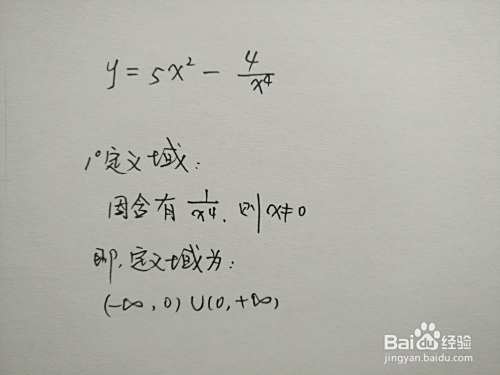 y = 5x² - 4/x⁴
1° 定义域：
因含有 1/x⁴, 则 x≠0
即, 定义域为：
(-∞, 0) ∪ (0, +∞)
Baidu 经验
jingyan.baidu.com